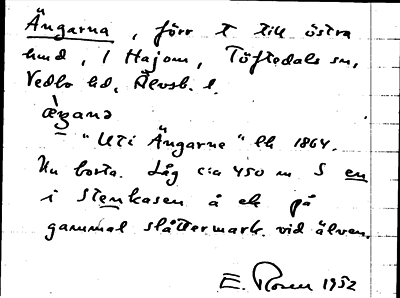 Ängarna, förr t till östra
hmd, i Hajom, Töftedals sn,
Vedbo hd, Älvsb. l.
æ̀ŋana
"Uti Ängarne" lk 1864.
Nu borta. Låg c:a 450 m S en
i Stenkasen å ek på
gammal slåttermark vid älven.
E. Rosen 1952